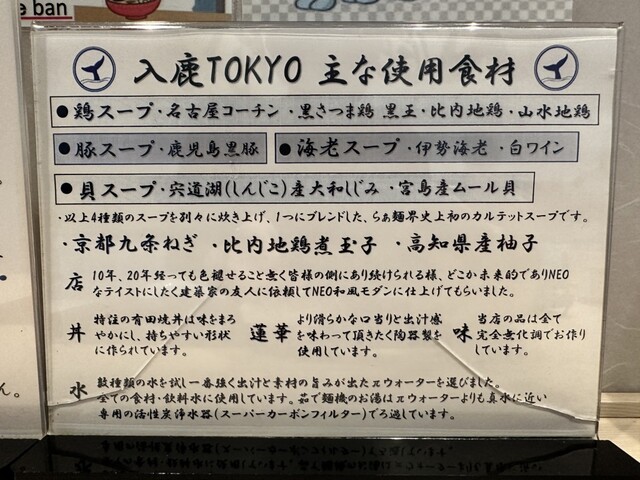 e ban
入鹿TOKYO 主な使用食材
●鶏スープ・名古屋コーチン ・黒さつま鶏 黒王・比内地鶏・山水地鶏
●豚スープ・鹿児島黒豚
●海老スープ・伊勢海老 ・白ワイン
●貝スープ・宍道湖(しんじこ)産大和しじみ ・宮島産ムール貝
・以上4種類のスープを別々に炊き上げ、1つにブレンドした、らぁ麺界史上初のカルテットスープです。
・京都九条ねぎ ・比内地鶏煮玉子 ・高知県産柚子
店 10年、20年経っても色褪せること無く皆様の側にあり続けられる様、どこか未来的でありNEO
なテイストにしたく建築家の友人に依頼してNEO和風モダンに仕上げてもらいました。
丼 特注の有田焼丼は味をまろ
やかにし、持ちやすい形状
に作られています。
蓮華 より滑らかな口当りと出汁感
を味わって頂きたく陶器製を
使用しています。
味 当店の品は全て
完全無化調でお作り
しています。
水 数種類の水を試し一番強く出汁と素材の旨みが出たπウォーターを選びました。
全ての食材・飲料水に使用しています。茹で麺機のお湯はπウォーターよりも真水に近い
専用の活性炭浄水器(スーパーカーボンフィルター)でろ過しています。
ん。